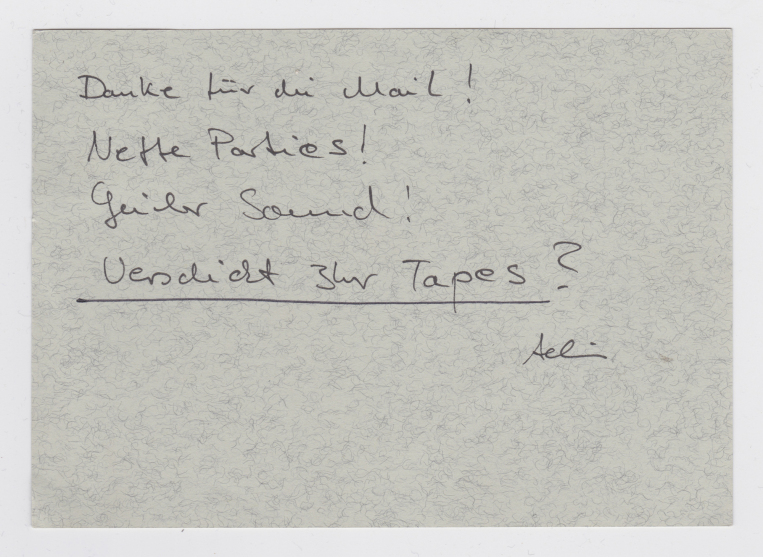 Danke für die Mail!
Nette Parties!
Geiler Sound!
Verschickt Ihr Tapes?
Achim